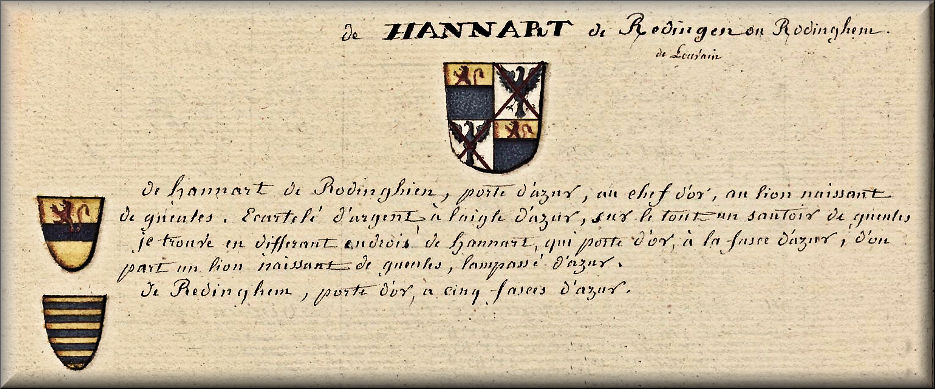 de HANNART de Rodingen ou Rodinghem.
de Louvain
de hannart de Rodinghien, porte d'azur, au chef d'or, au lion naissant
de gueules. Ecartelé d'argent à laigle d'azur, sur le tout un sautoir de gueules
je trouve en differant endrois de hannart, qui porte d'or, à la fasce d'azur, d'ou
part un lion naissant de gueules, lampassé d'azur.
de Redinghem, porte d'or, à cinq fasces d'azur.